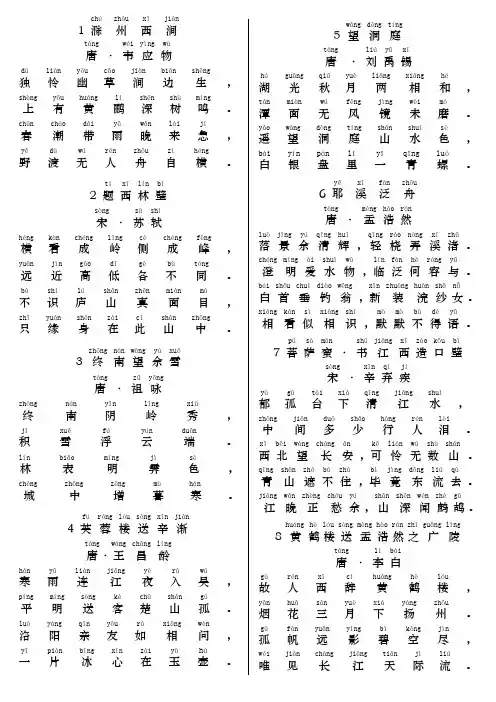 chú zhōu xī jiàn
1 滁 州 西 涧
táng wéi yìng wù
唐 · 韦 应 物
dú lián yōu cǎo jiàn biān shēng
独 怜 幽 草 涧 边 生 ，
shàng yǒu huáng lí shēn shù míng
上 有 黄 鹂 深 树 鸣 .
chūn cháo dài yǔ wǎn lái jí
春 潮 带 雨 晚 来 急 ，
yě dù wú rén zhōu zì héng
野 渡 无 人 舟 自 横 .
tí xī lín bì
2 题 西 林 壁
sòng sū shì
宋 · 苏 轼
héng kàn chéng lǐng cè chéng fēng
横 看 成 岭 侧 成 峰 ，
yuǎn jìn gāo dī gè bù tóng
远 近 高 低 各 不 同 .
bù shí lú shān zhēn miàn mù
不 识 庐 山 真 面 目 ，
zhǐ yuán shēn zài cǐ shān zhōng
只 缘 身 在 此 山 中 .
zhōng nán wàng yú xuě
3 终 南 望 余 雪
táng zǔ yǒng
唐 · 祖 咏
zhōng nán yīn lǐng xiù
终 南 阴 岭 秀 ，
jī xuě fú yún duān
积 雪 浮 云 端 .
lín biǎo míng jì sè
林 表 明 霁 色 ，
chéng zhōng zēng mù hán
城 中 增 暮 寒 .
fú róng lóu sòng xīn jiàn
4 芙 蓉 楼 送 辛 渐
táng wáng chāng líng
唐 · 王 昌 龄
hán yǔ lián jiāng yè rù wú
寒 雨 连 江 夜 入 吴 ，
píng míng sòng kè chǔ shān gū
平 明 送 客 楚 山 孤 .
luò yáng qīn yǒu rú xiāng wèn
洛 阳 亲 友 如 相 问 ，
yī piàn bīng xīn zài yù hú
一 片 冰 心 在 玉 壶 .
wàng dòng tíng
5 望 洞 庭
táng liú yǔ xī
唐 · 刘 禹 锡
hú guāng qiū yuè liǎng xiāng hé
湖 光 秋 月 两 相 和 ，
tán miàn wú fēng jìng wèi mó
潭 面 无 风 镜 未 磨 .
yáo wàng dòng tíng shān shuǐ sè
遥 望 洞 庭 山 水 色 ，
bái yín pán lǐ yī qīng luó
白 银 盘 里 一 青 螺 .
yē xī fàn zhōu
6 耶 溪 泛 舟
táng mèng hào rán
唐 · 孟 浩 然
luò jǐng yú qīng huī qīng ráo nòng xī zhǔ
落 景 余 清 辉 ，轻 桡 弄 溪 渚 .
chéng míng ài shuǐ wù lín fàn hé róng yǔ
澄 明 爱 水 物 ，临 泛 何 容 与 .
bái shǒu chuí diào wēng xīn zhuāng huàn shā nǚ
白 首 垂 钓 翁 ，新 装 浣 纱 女 .
xiāng kàn sì xiāng shí mò mò bù dé yǔ
相 看 似 相 识 ，默 默 不 得 语 .
pú sà mán shū jiāng xī zào kǒu bì
7 菩 萨 蛮 · 书 江 西 造 口 壁
sòng xīn qì jí
宋 · 辛 弃 疾
yù gū tái xià qīng jiāng shuǐ
郁 孤 台 下 清 江 水 ，
zhōng jiān duō shǎo háng rén lèi
中 间 多 少 行 人 泪 .
xī běi wàng cháng ān kě lián wú shù shān
西 北 望 长 安 ，可 怜 无 数 山 .
qīng shān zhē bú zhù bì jìng dōng liú qù
青 山 遮 不 住 ，毕 竟 东 流 去 .
jiāng wǎn zhèng chóu yú shān shēn wén zhè gū
江 晚 正 愁 余 ，山 深 闻 鹧 鸪 .
huáng hè lóu sòng mèng hào rán zhī guǎng líng
8 黄 鹤 楼 送 孟 浩 然 之 广 陵
táng lǐ bái
唐 · 李 白
gù rén xī cí huáng hè lóu
故 人 西 辞 黄 鹤 楼 ，
yān huā sān yuè xià yáng zhōu
烟 花 三 月 下 扬 州 .
gū fān yuǎn yǐng bì kōng jìn
孤 帆 远 影 碧 空 尽 ，
wéi jiàn cháng jiāng tiān jì liú
唯 见 长 江 天 际 流 .